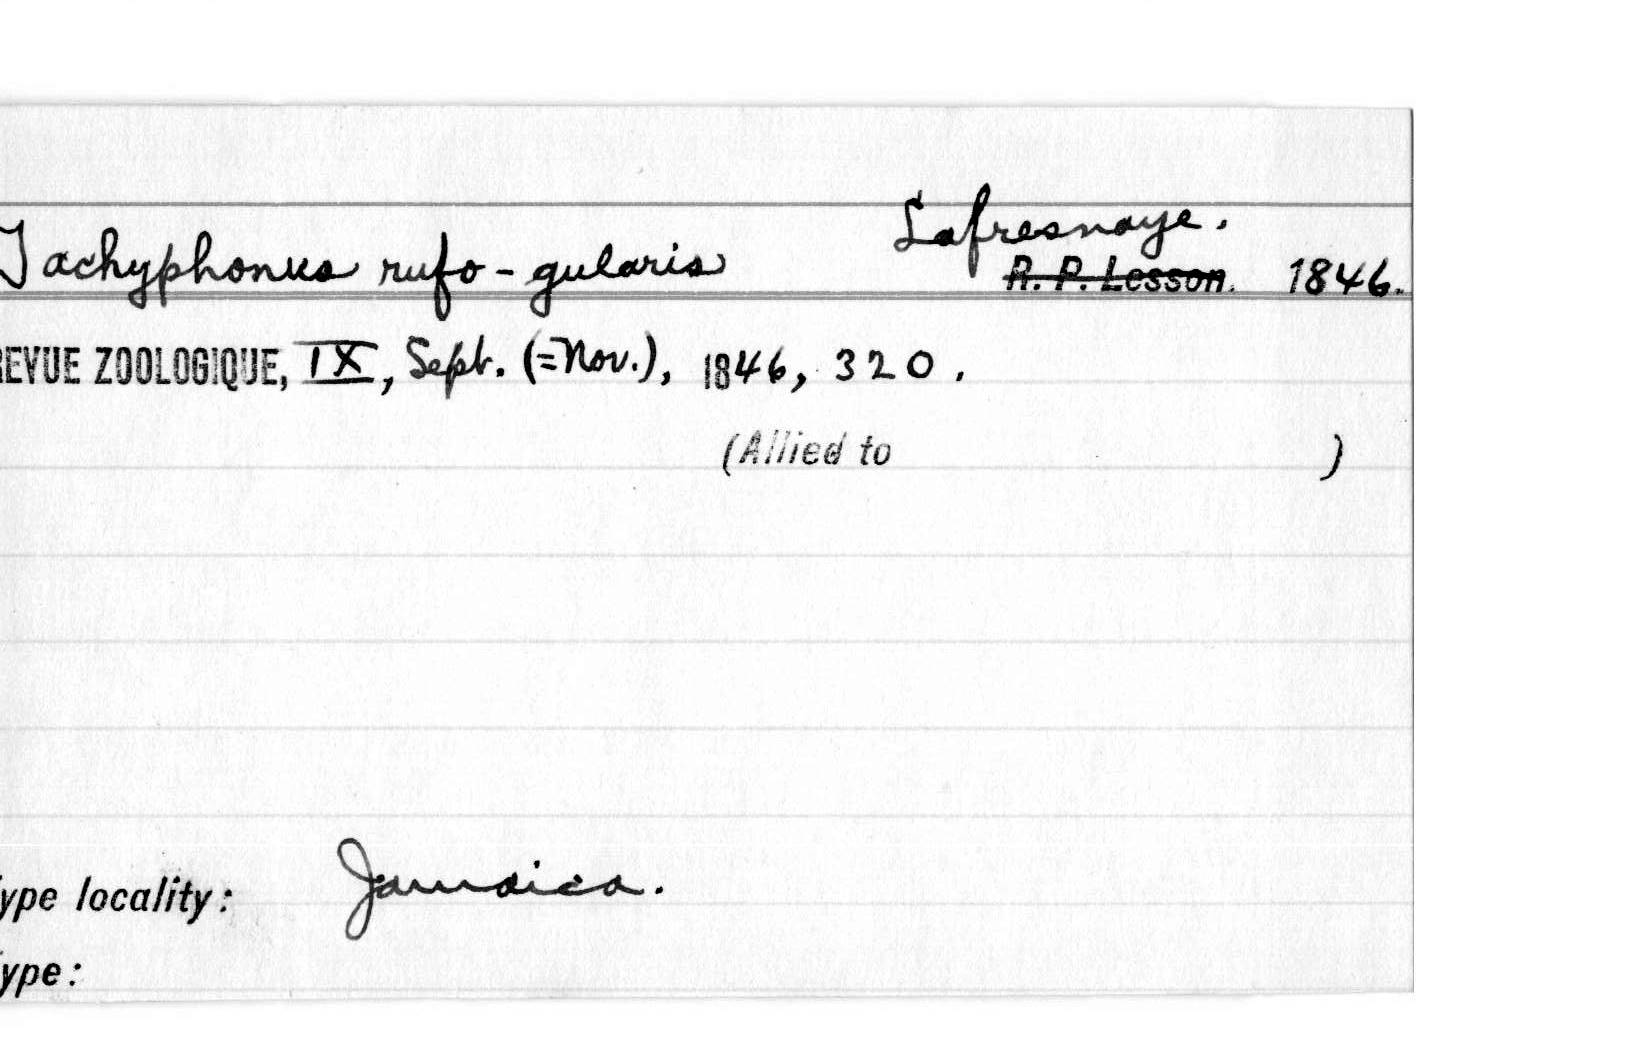 Tachyphonus rufo-gularis Lafresnaye.
R. P. Lesson. 1846.
REVUE ZOOLOGIQUE, IX, Sept. (=Nov.), 1846, 320.
(Allied to )
Type locality: Jamaica.
Type: